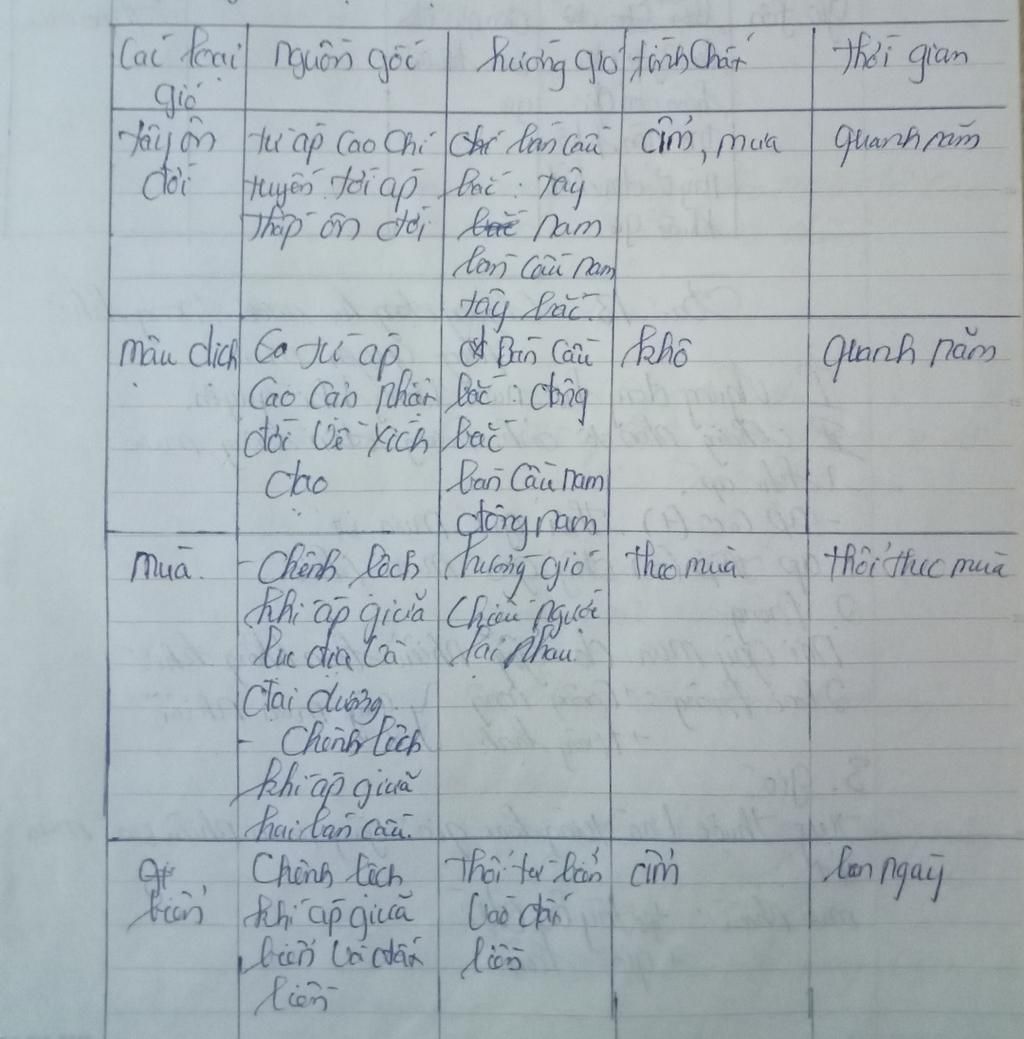 Các loại gió
nguồn gốc
hướng gió
tính chất
thời gian
tây ôn đới
từ áp cao chí
tuyến tới áp
thấp ôn đới
bán cầu
bắc: tây
nam
bán cầu nam
tây bắc.
ẩm, mưa
quanh năm
mậu dịch
từ áp
cao cận nhiệt
đới về xích
đạo
Bán cầu
bắc: đông
bắc
bán cầu nam
đông nam
khô
quanh năm
mùa.
- Chênh lệch
khí áp giữa
lục địa và
đại dương.
- Chênh lệch
khí áp giữa
hai bán cầu.
hướng gió
chiều ngược
lại nhau
theo mùa
thổi theo mùa
biển
Chênh lệch
khí áp giữa
biển và đất
liền
thổi từ biển
vào đất
liền
ẩm
ban ngày